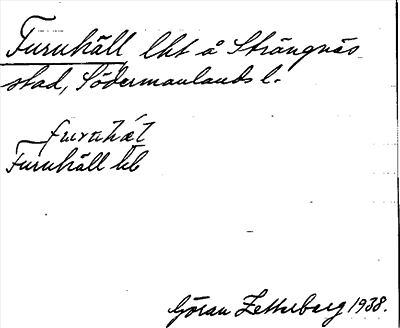 Furuhäll lht å Strängnäs
stad, Södermanlands l.
Furuhäll
Göran Zetterberg 1938.